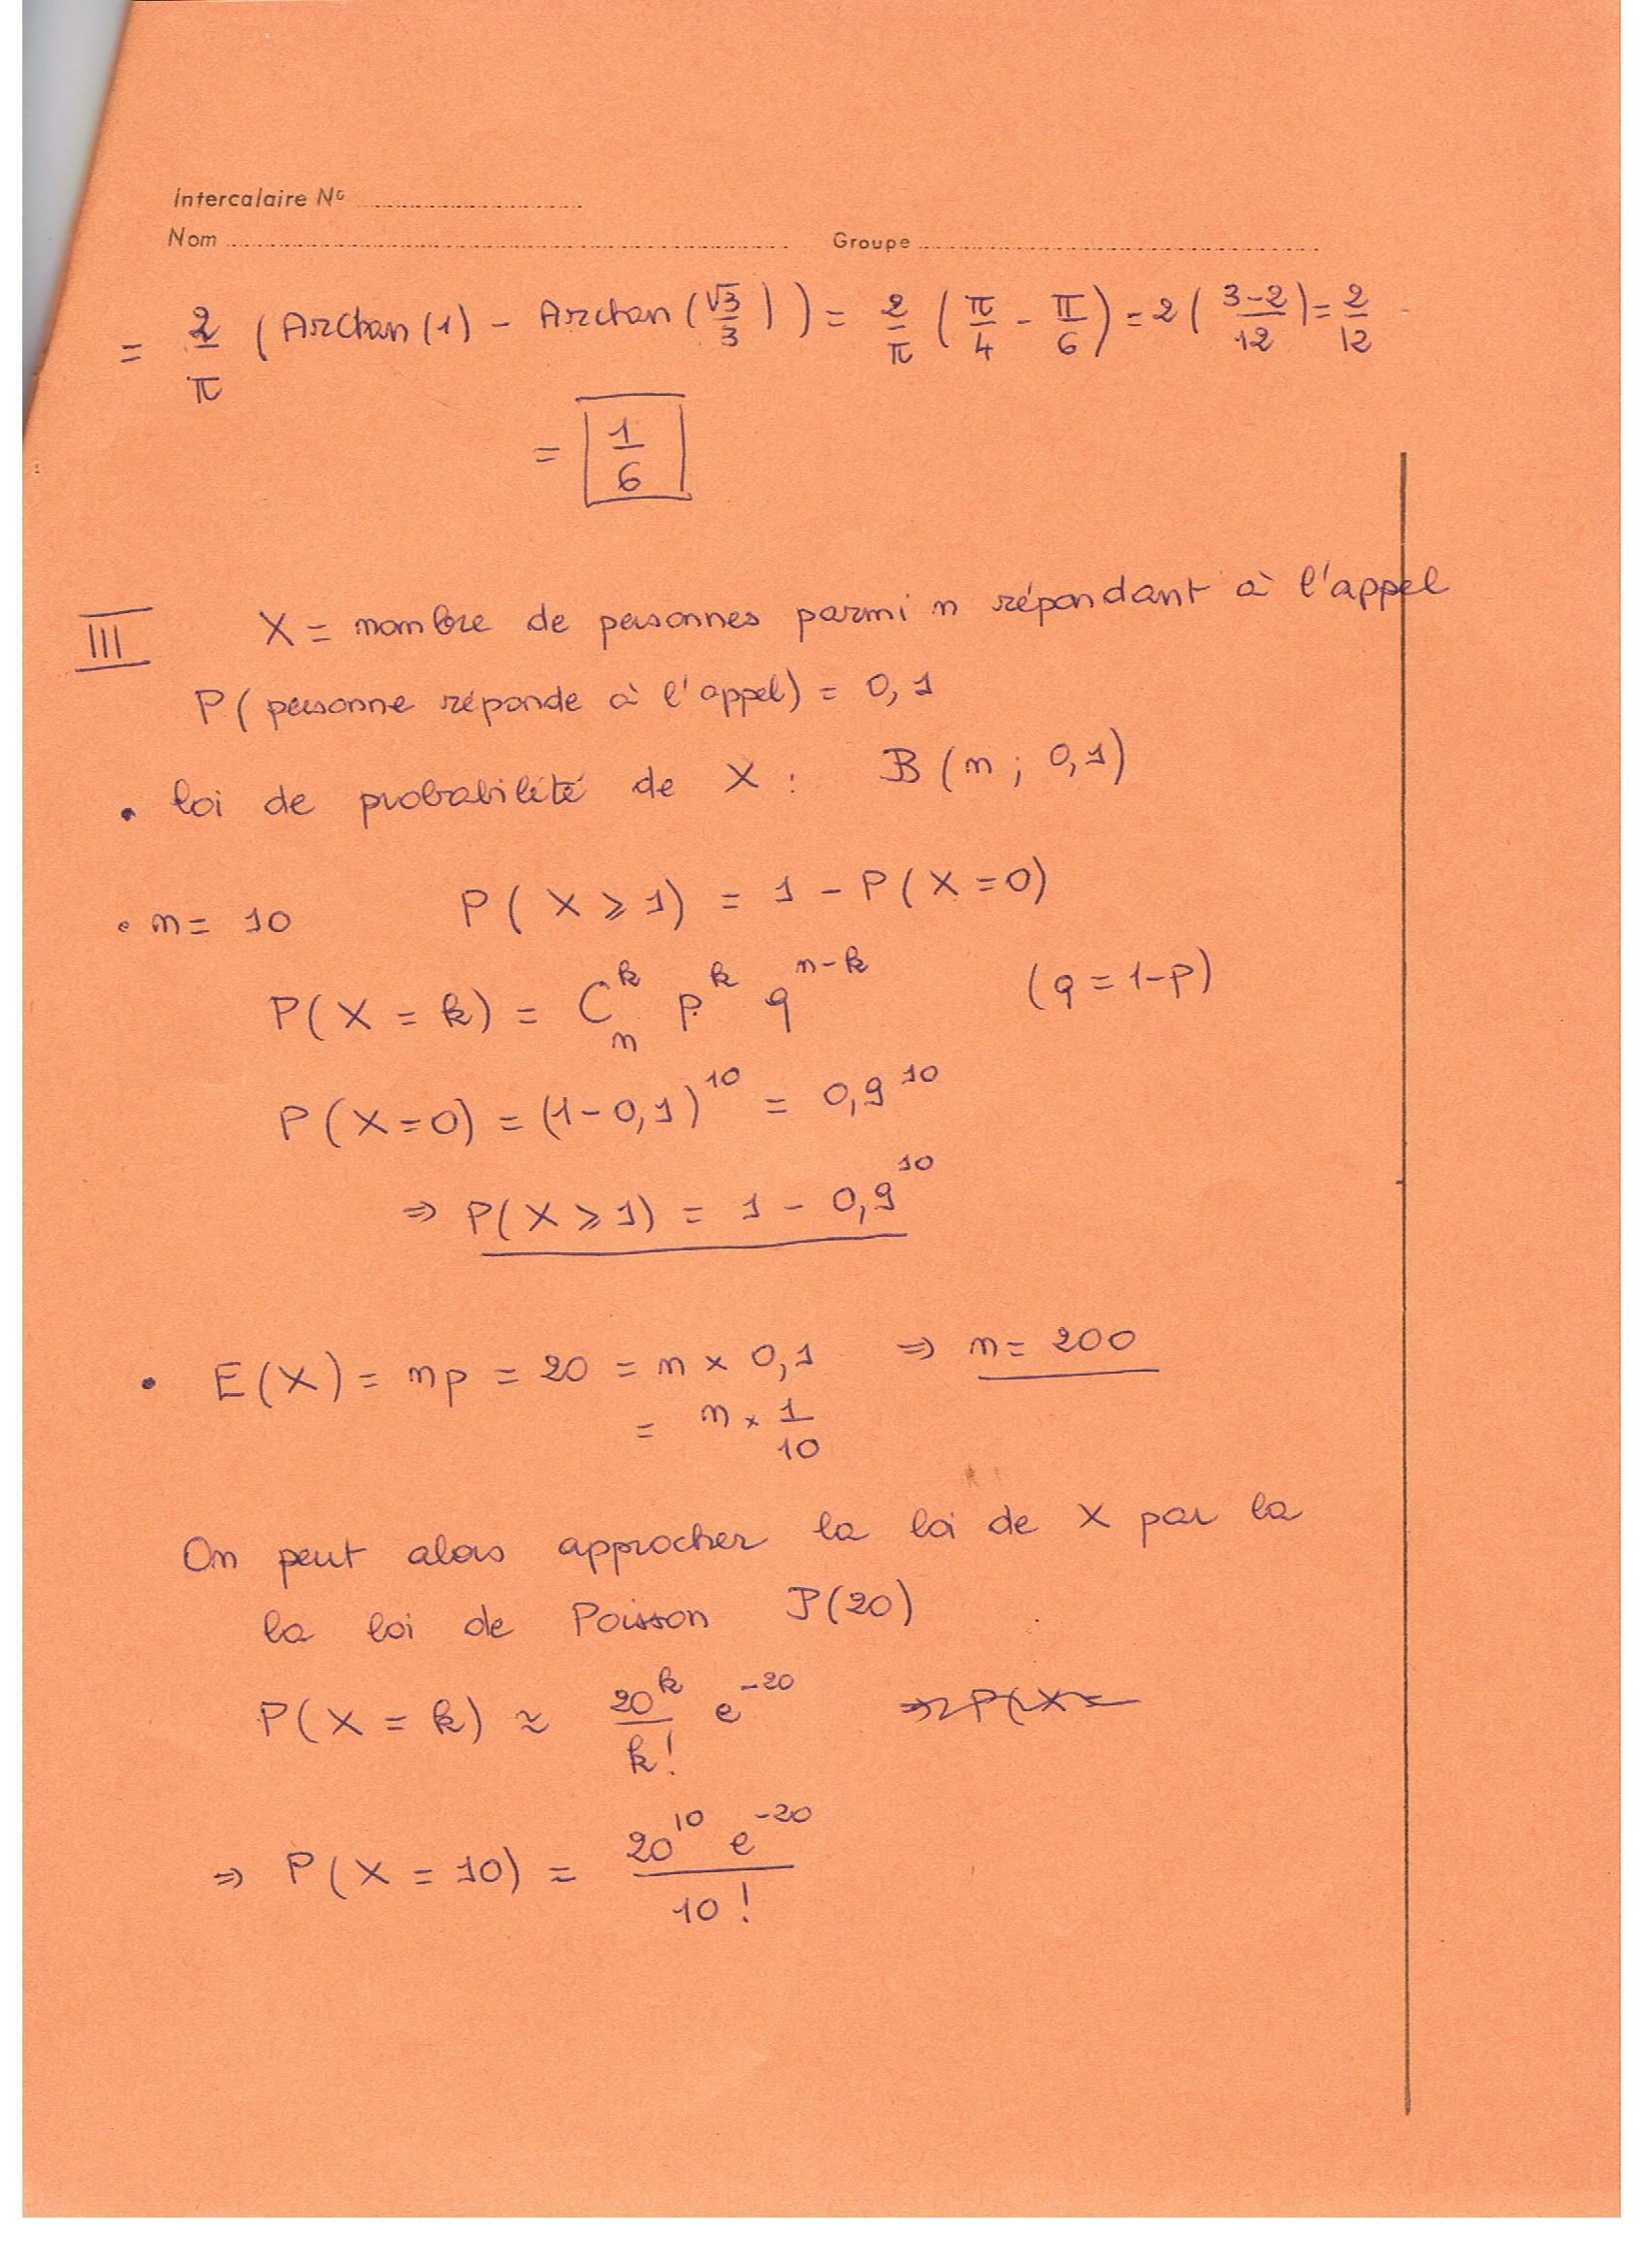 Intercalaire N°
Nom Groupe
= 2/π (Arctan(1) - Arctan(√3/3)) = 2/π (π/4 - π/6) = 2(3-2/12) = 2/12
= 1/6
III X = nombre de personnes parmi n répondant à l'appel
P(personne réponde à l'appel) = 0,1
• loi de probabilité de X : B(n ; 0,1)
• n = 10 P(X ⩾ 1) = 1 - P(X = 0)
P(X = k) = C_n^k p^k q^(n-k) (q = 1-p)
P(X=0) = (1-0,1)^10 = 0,9^10
⇒ P(X ⩾ 1) = 1 - 0,9^10
• E(X) = np = 20 = n × 0,1 ⇒ n = 200
= n × 1/10
On peut alors approcher la loi de X par la
la loi de Poisson P(20)
P(X = k) ≈ 20^k/k! e^-20 ⇒ P(X =
⇒ P(X = 10) = 20^10 e^-20 / 10!